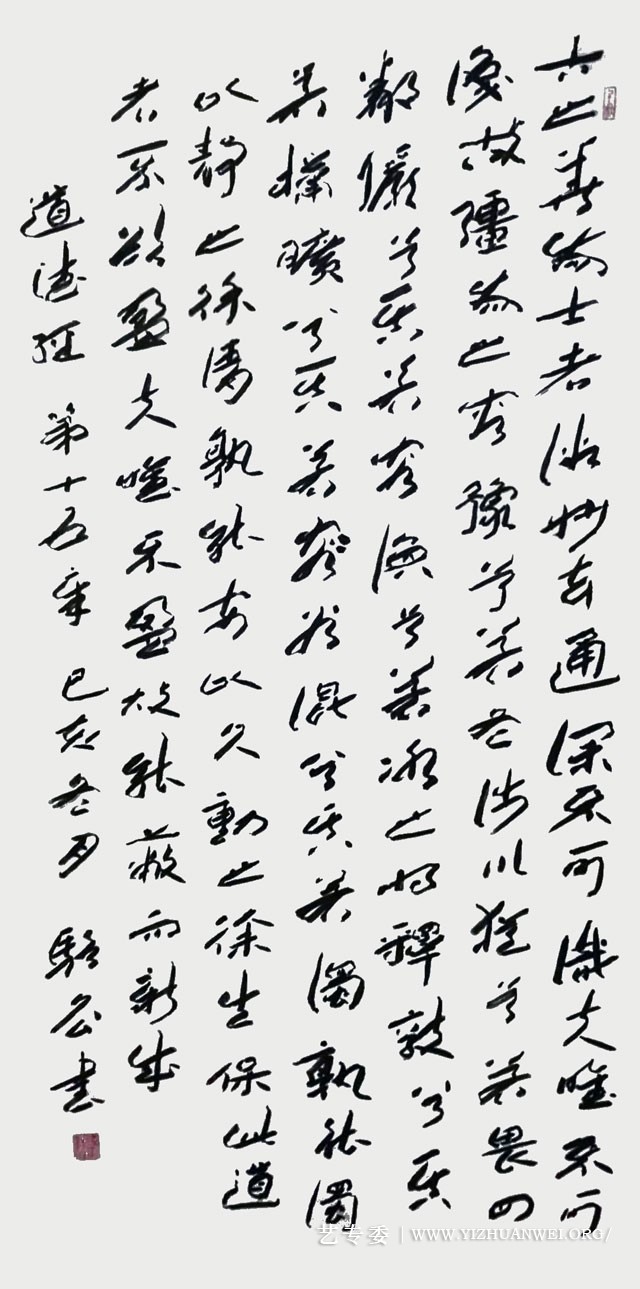 古之善為士者微妙玄通深不可識夫唯不可
識故彊為之容豫兮若冬涉川猶兮若畏四
鄰儼兮其若容渙兮若冰之將釋敦兮其
若樸曠兮其若容谷混兮其若濁孰能濁
以靜之徐清孰能安以久動之徐生保此道
者不欲盈夫唯不盈故能蔽而新成
道德經 第十五章 己亥冬月 駱公書
艺专委 | WWW.YIZHUANWEI.ORG/